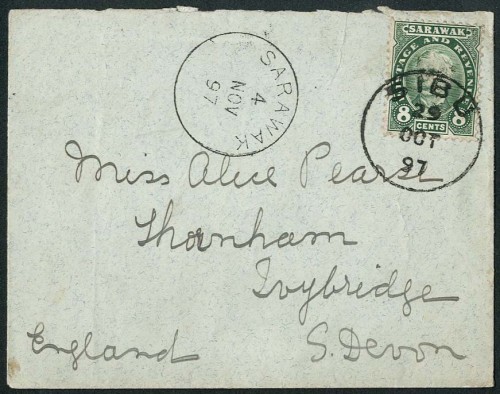 SARAWAK
POSTAGE AND REVENUE
8 CENTS 8
SIBU
29
OCT
97
SARAWAK
4
NOV
97
Miss Alice Pearse
Thornham
Ivybridge
S. Devon
England